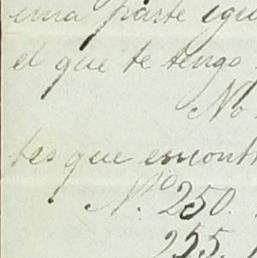 una parte igu
el que te tengo
No
tes que encont
Nº 250.
255.